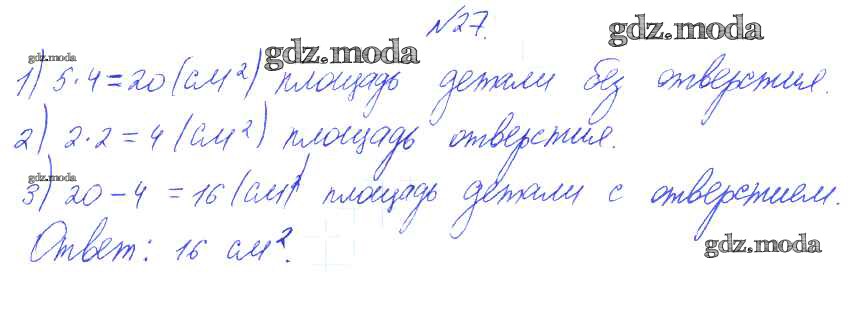 №27.
gdz.moda
gdz.moda
gdz.moda
1) 5·4=20 (см²) площадь детали без отверстия.
2) 2·2=4 (см²) площадь отверстия.
gdz.moda
3) 20-4=16 (см²) площадь детали с отверстием.
Ответ: 16 см².
gdz.moda